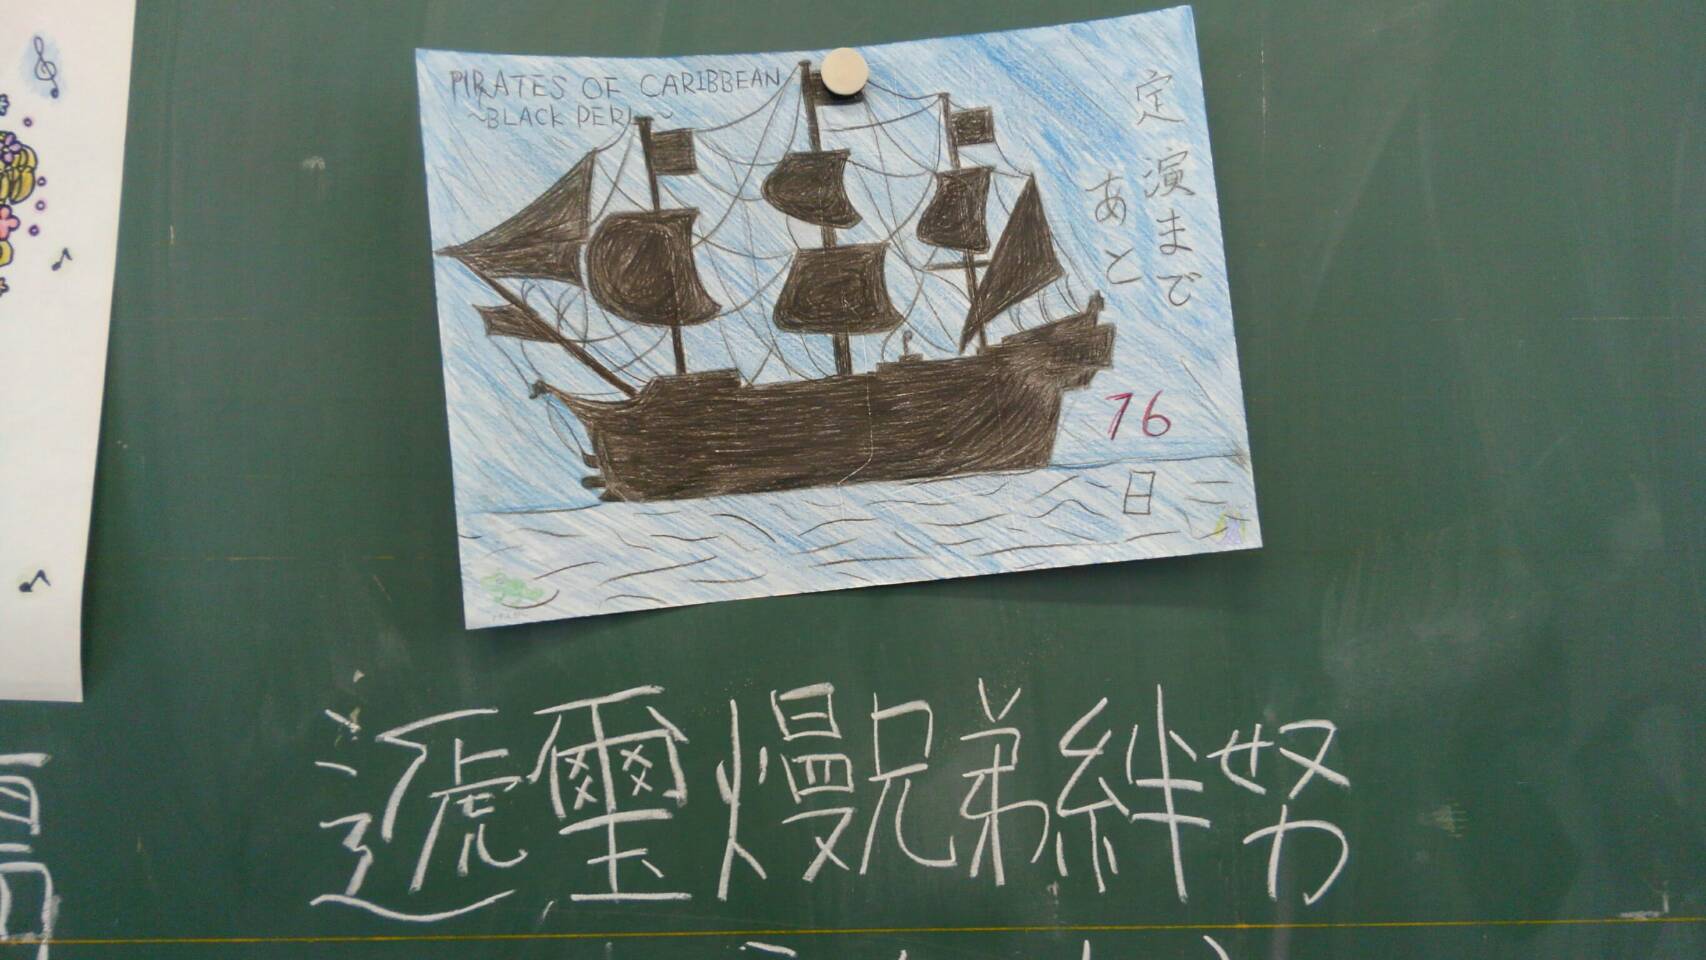 PIRATES OF CARIBBEAN
~BLACK PERL~
定演まで
あと
76
日
遞璽慢兄弟絆努